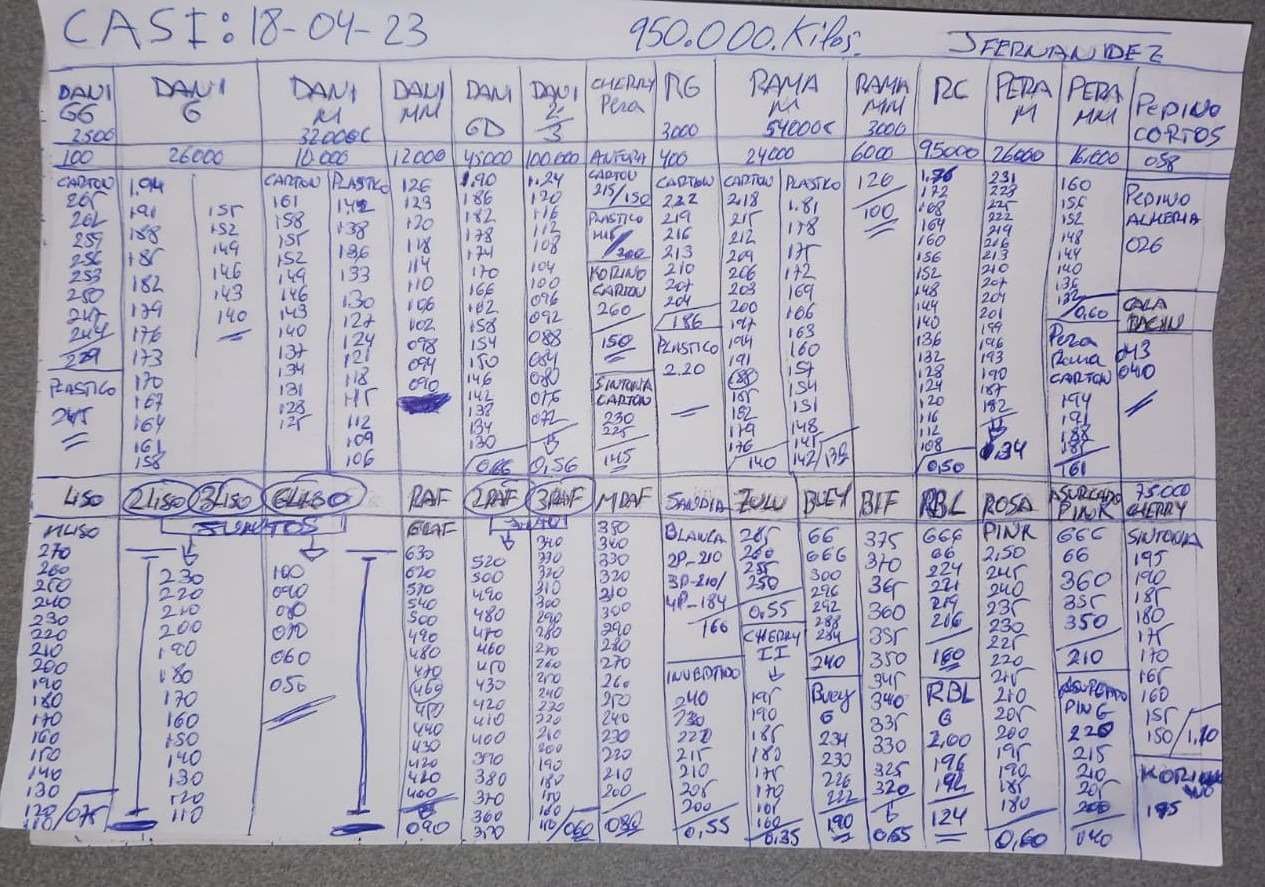 CASI: 18-04-23 950.000.Kilos. JFERNANDEZ
DANI GG 2500
DANI G
DANI M 32000C
DANI MM
DANI GD
DANI 2/3
CHERRY Pera
RG 3000
RAMA M 54000C
RAMA MM 3000
RC
PERA M
PERA MM
PEPINO CORTOS
100 26000 10.000 12000 45000 100.000 ANFORA 400 24000 6000 95000 26000 16.000 058
CARTON
265
262
259
256
253
250
247
244
PLASTICO
245
1.94
191
188
185
182
179
176
173
170
167
164
161
158
155
152
149
146
143
140
CARTON
161
158
155
152
149
146
143
140
137
134
131
128
125
PLASTICO
138
136
133
130
127
124
121
118
115
112
109
106
126
123
120
118
114
110
106
102
098
094
090
1.90
186
182
178
174
170
166
162
158
154
150
146
142
138
134
130
1.24
120
116
112
108
104
100
096
092
088
084
080
076
072
0,56
CARTON
215/150
PLASTICO
/200
KORINO
CARTON
260
150
SINTONIA
CARTON
230
225
145
CARTON
222
219
216
213
210
207
204
186
PLASTICO
2.20
CARTON
218
215
212
209
206
203
200
197
194
191
188
185
182
179
176
140
PLASTICO
1.81
178
175
172
169
166
163
160
157
154
151
148
145
142/132
126
100
1.76
172
168
164
160
156
152
148
144
140
136
132
128
124
120
116
112
108
0,50
231
228
225
222
219
216
213
210
207
204
201
199
196
193
190
187
182
160
156
152
148
144
140
136
132
/0,60
Pera
Rama
CARTON
194
191
188
185
161
PEPINO
ALMERIA
026
CALA
BACIN
043
040
LISO 2LISO 3LISO GLISO RAF 2RAF 3RAF MRAF SANDIA ZULU BUEY BIF RBL ROSA ASURCADO PINK 75.000 CHERRY
MLISO
270
260
250
240
230
220
210
200
190
180
170
160
150
140
130
120
110/075
JUNTOS
230
220
210
200
190
180
170
160
150
140
130
120
110
100
090
080
070
060
050
GRAF
630
620
570
540
500
490
480
470
460
450
440
430
420
410
400
090
520
500
490
480
470
460
450
430
420
410
400
390
380
370
360
350
340
330
320
310
300
290
280
270
260
250
240
230
220
210
200
190
180
170
160
110/060
380
340
330
320
310
300
290
280
270
260
250
240
230
220
210
200
080
BLANCA
2P-210
3P-210/
4P-184
166
INVERTIDO
240
230
222
215
210
205
200
0,55
265
260
255
250
0,55
CHERRY
II
195
190
185
180
175
170
165
160
0,35
66
666
300
296
292
288
284
240
BUEY
G
234
230
226
222
190
375
370
365
360
355
350
345
340
335
330
325
320
0,65
666
66
224
221
219
206
160
RBL
G
2,00
196
192
124
PINK
2,50
245
240
235
230
225
220
215
210
205
200
195
190
185
180
0,60
666
66
360
355
350
210
ASURCADO
PIN G
220
215
210
205
200
040
SINTONIA
195
190
185
180
175
170
165
160
155
150/1,10
195